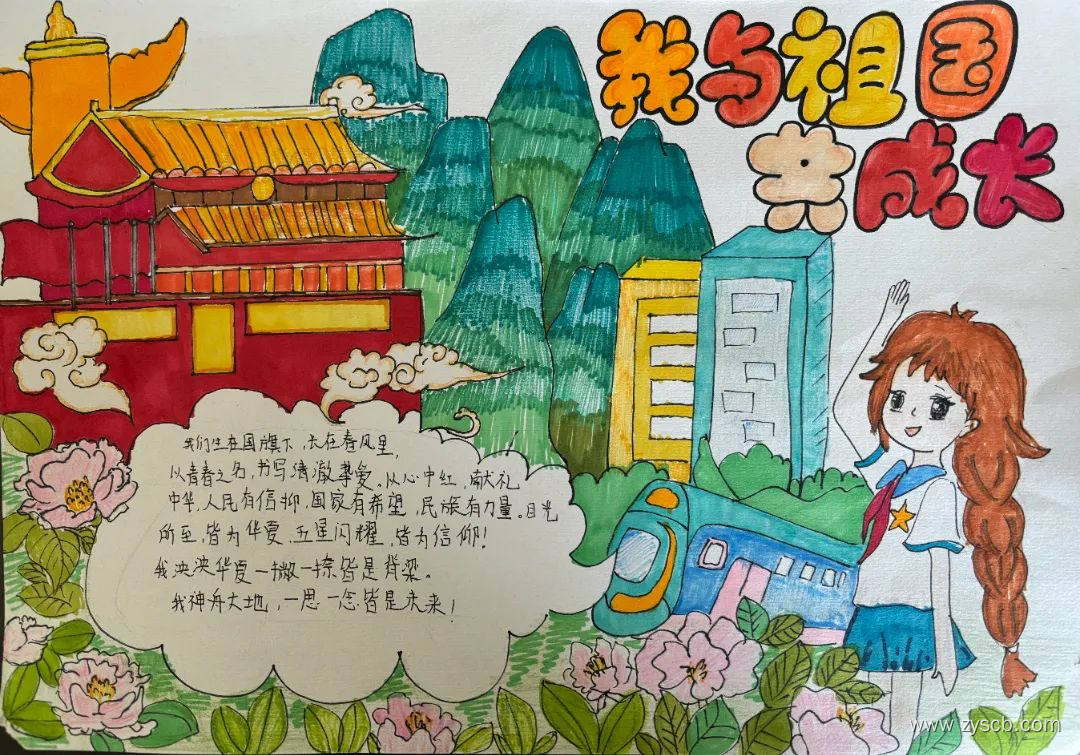 我与祖国
共成长
我们生在国旗下，长在春风里，
以青春之名，书写清澈挚爱。从心中红，献礼
中华，人民有信抑，国家有希望，民族有力量。目光
所至，皆为华夏，五星闪耀，皆为信仰！
我泱泱华夏一撇一捺皆是脊梁。
我神舟大地，一思一念皆是未来！
www.zyscb.com